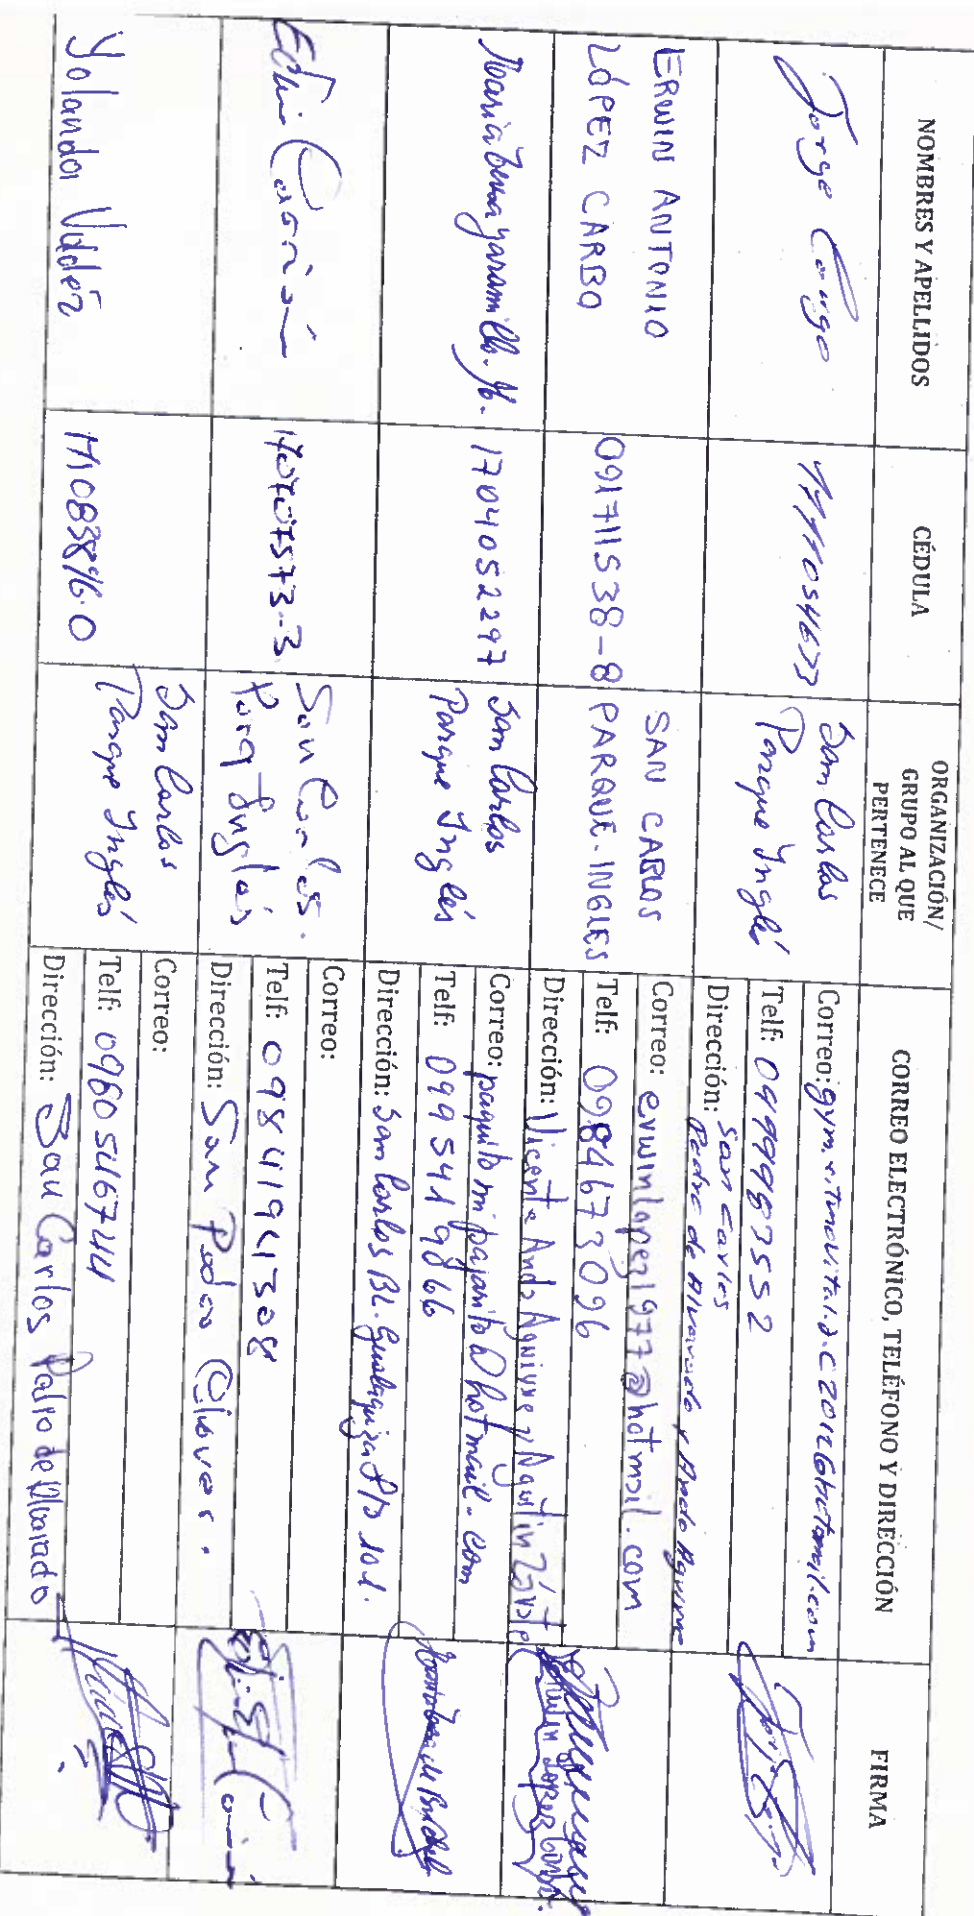 NOMBRES Y APELLIDOS
CÉDULA
ORGANIZACIÓN/
GRUPO AL QUE
PERTENECE
CORREO ELECTRÓNICO, TELÉFONO Y DIRECCIÓN
FIRMA
Jorge Congo
San Carlos
Parque Inglé
Correo:
Telf: 0999987552
Dirección: San Carlos
Pedro de Alvarado y Ando Aguirre
ERWIN ANTONIO
LÓPEZ CARBO
091711538-8
SAN CARLOS
PARQUE-INGLES
Correo: erwinlopez1977@hotmail.com
Telf: 0984673096
Dirección: Vicente Anda Aguirre y Agustin Zárate
Erwin Lopez Carbo.
Maria jaramillo.
1704052297
San Carlos
Parque Inglés
Correo: paquitomipajarito@hotmail.com
Telf: 099 541 9866
Dirección: San Carlos BL. Gualaquiza 101.
San Carlos.
Parq Inglés
Correo:
Telf: 0984194308
Dirección: San Pedro
Yolanda Valdéz
San Carlos
Parque Inglés
Correo:
Telf: 0960546744
Dirección: San Carlos Pedro de Alvarado